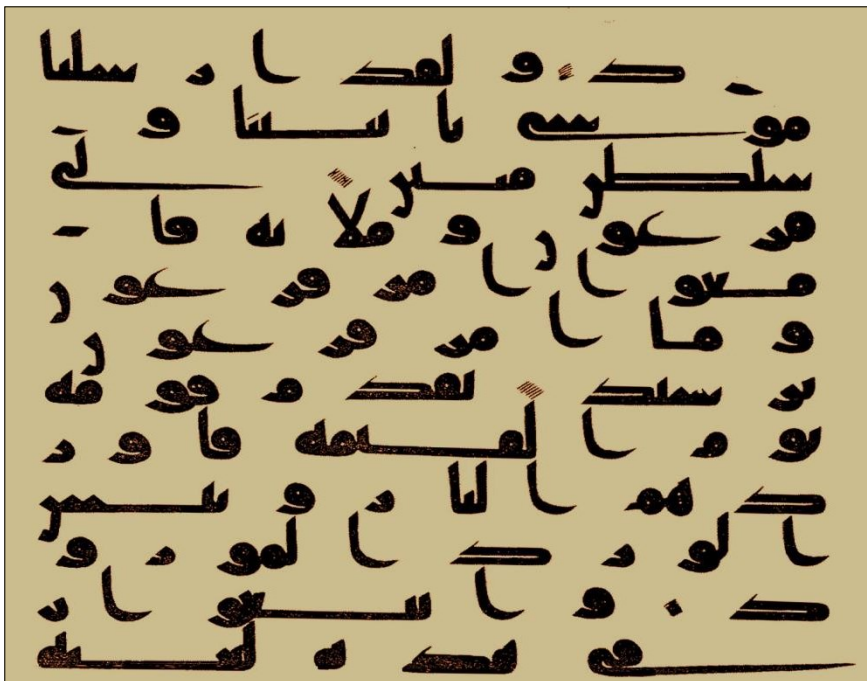 د ولقد ارسلنا
موسى بايتنا و
سلطن مبين الى
فرعون وملايه فا
تبعوا امر فرعون
وما امر فرعون
برشيد يقدم قومه
يوم القيمة فاور
دهم النار وبيس
الورد المورو
د واتبعوا
فى هذه لعنة